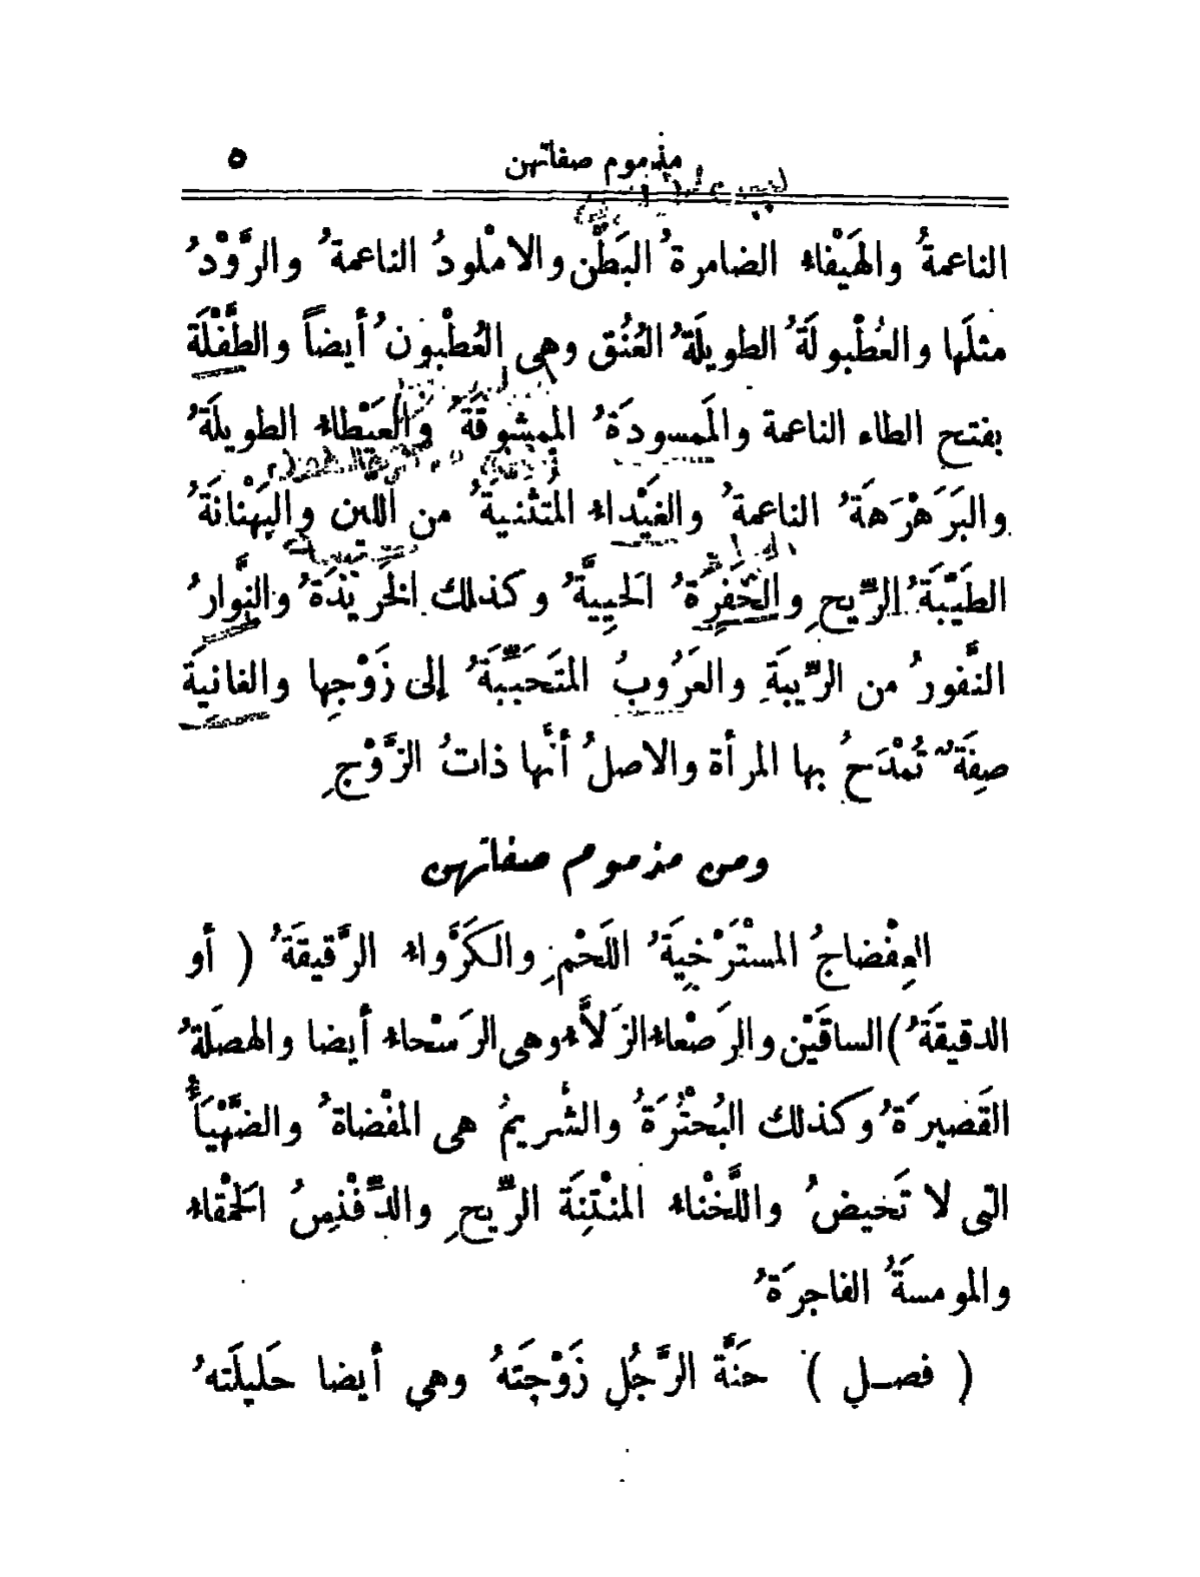 مذموم صفاتهن ٥
الناعمةُ والهَيْفاء الضامرةُ البَطْن والاملْودُ الناعمةُ والرَّوْدُ
مثلَها والعُطْبولَةُ الطويلَةُ العُنُق وهى العُطْبونُ أيضاً والطَّفْلَة
بفتح الطاء الناعمة والمَمسودَةُ الممشوقَةُ والعَيْطاء الطويلَةُ
والبَرَهْرَهَةُ الناعمةُ والغَيْداء المُتَثنيةُ من اللين والبَهْنانَةُ
الطَيِّبَةُ الرِّيحِ والخَفِرَةُ الحَيِيَّةُ وكذلك الخَريْدَةُ والنَّوارُ
النَّفورُ من الرِّيبَةِ والعَرُوبُ المتَحَبِّبَةُ إلى زَوْجِها والغانيَة
صِفَةٌ تُمْدَحُ بها المرأة والاصلُ أنَّها ذاتُ الزَّوْجِ
ومن مذموم صفاتهن
العِفْضاجُ المسْتَرْخِيَةُ اللَحْمِ والكَرَّواء الرَّقيقَةُ ( أو
الدقيقَةُ ) الساقَيْن والرَصْعاء الزَلاَّء وهى الرَسْحاء أيضا والهصَلةُ
القَصيرَةُ وكذلك البُحْتُرَةُ والشَريمُ هى المفْضاةُ والضَّهْيَأُ
التى لا تَحيضُ واللَّخْناء المنْتِنَة الرِّيحِ والدِّفْنِسُ الحَمْقاء
والمومسَةُ الفاجرَةُ
( فصل ) حَنَّة الرَّجُلِ زَوْجَتهُ وهي أيضا حَليلَتهُ